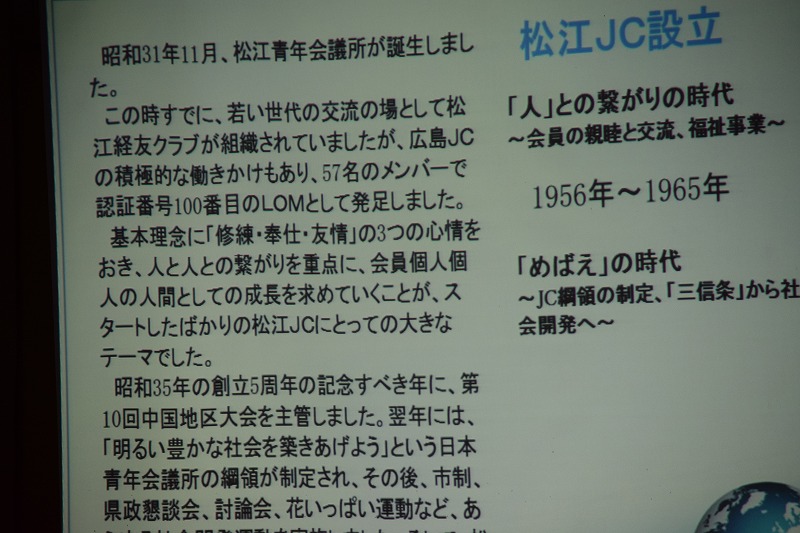 昭和31年11月、松江青年会議所が誕生しまし
た。
この時すでに、若い世代の交流の場として松
江経友クラブが組織されていましたが、広島JC
の積極的な働きかけもあり、57名のメンバーで
認証番号100番目のLOMとして発足しました。
基本理念に「修練・奉仕・友情」の3つの心情を
おき、人と人との繋がりを重点に、会員個人個
人の人間としての成長を求めていくことが、ス
タートしたばかりの松江JCにとっての大きな
テーマでした。
昭和35年の創立5周年の記念すべき年に、第
10回中国地区大会を主管しました。翌年には、
「明るい豊かな社会を築きあげよう」という日本
青年会議所の綱領が制定され、その後、市制、
県政懇談会、討論会、花いっぱい運動など、あ
松江JC設立
「人」との繋がりの時代
～会員の親睦と交流、福祉事業～
1956年～1965年
「めばえ」の時代
～JC綱領の制定、「三信条」から社
会開発へ～